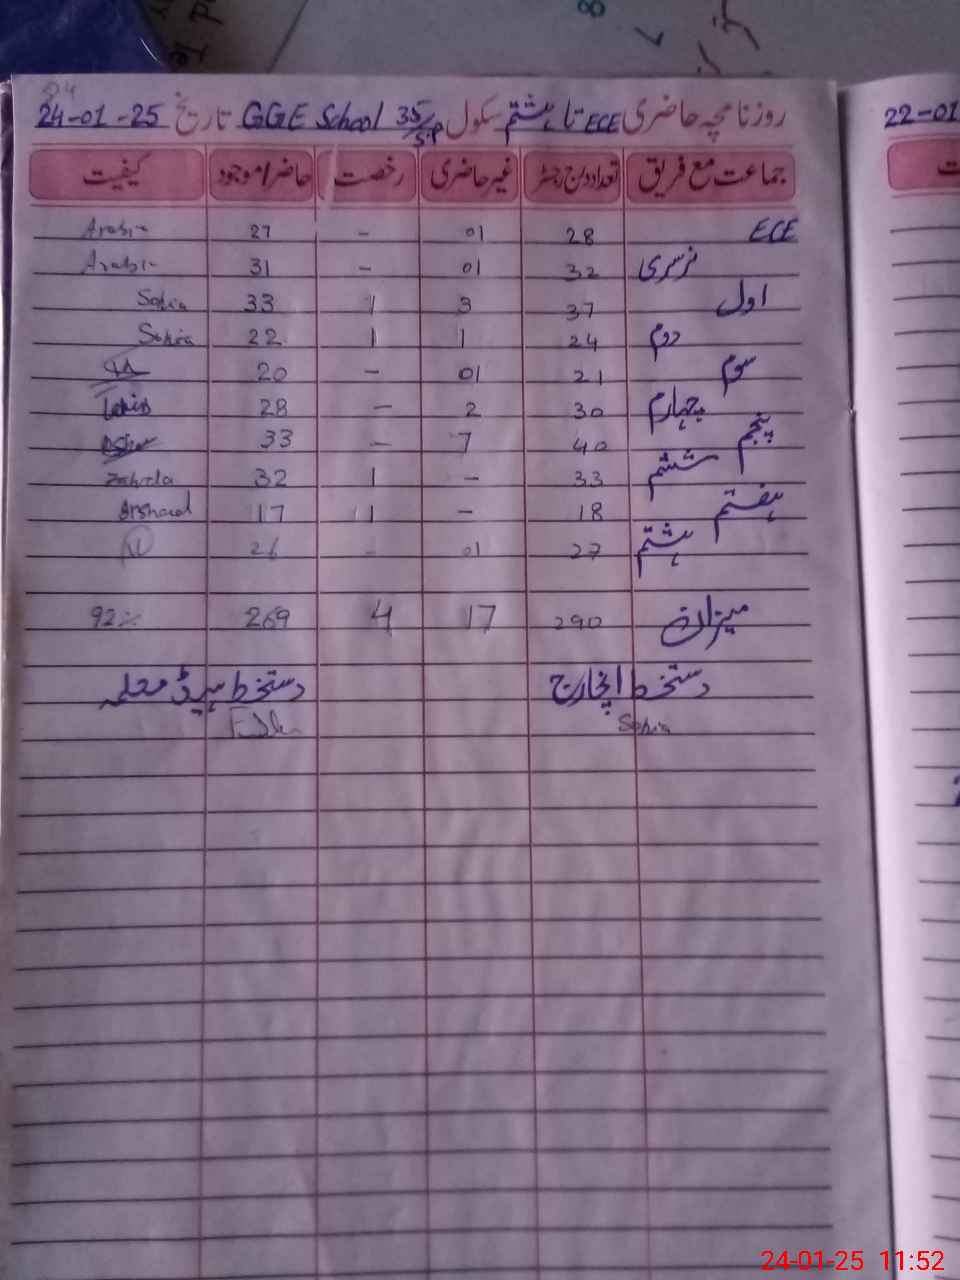 روزنامچہ حاضری ECE تا ہشتم سکول GGE School 35/S.P تاریخ 24-01-25
جماعت مع فریق تعداد درج رجسٹر غیر حاضری رخصت حاضر/موجود کیفیت
ECE 28 01 - 27 Arabia
نرسری 32 01 - 31 Arabia
اول 37 3 1 33 Sobia
دوم 24 1 1 22 Sobia
سوم 21 01 - 20
چہارم 30 2 - 28
پنجم 40 7 - 33
ششم 33 - 1 32
ہفتم 18 - 1 17 Arshad
ہشتم 27 01 - 26
میزان 290 17 4 269 92%
دستخط انچارج دستخط ہیڈ معلمہ
Sobia
22-01
24-01-25 11:52